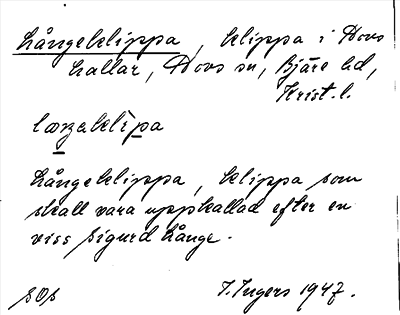 Långeklippa, klippa i Hovs
hallar, Hovs sn, Bjäre hd,
Krist. l.
Långeklippa, klippa som
skall vara uppkallad efter en
viss Sigurd Långe.
SOS
I. Ingers 1947.